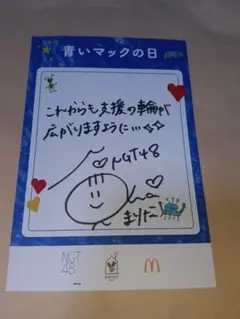 青いマックの日
これからも支援の輪が
広がりますように…☆☆
♡NGT48
♡
まりた
NGT
48
M